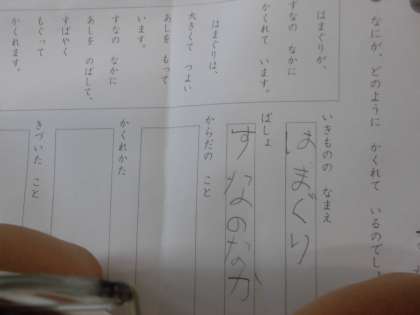 なにが、どのように かくれて いるのでし
はまぐりが、
すなの なかに
かくれて います。
はまぐりは、
大きくて つよい
あしを もって
います。
すなの なかに
あしを のばして、
すばやく
もぐって
かくれます。
いきものの なまえ
はまぐり
ばしょ
すなのなか
からだの こと
かくれかた
きづいた こと